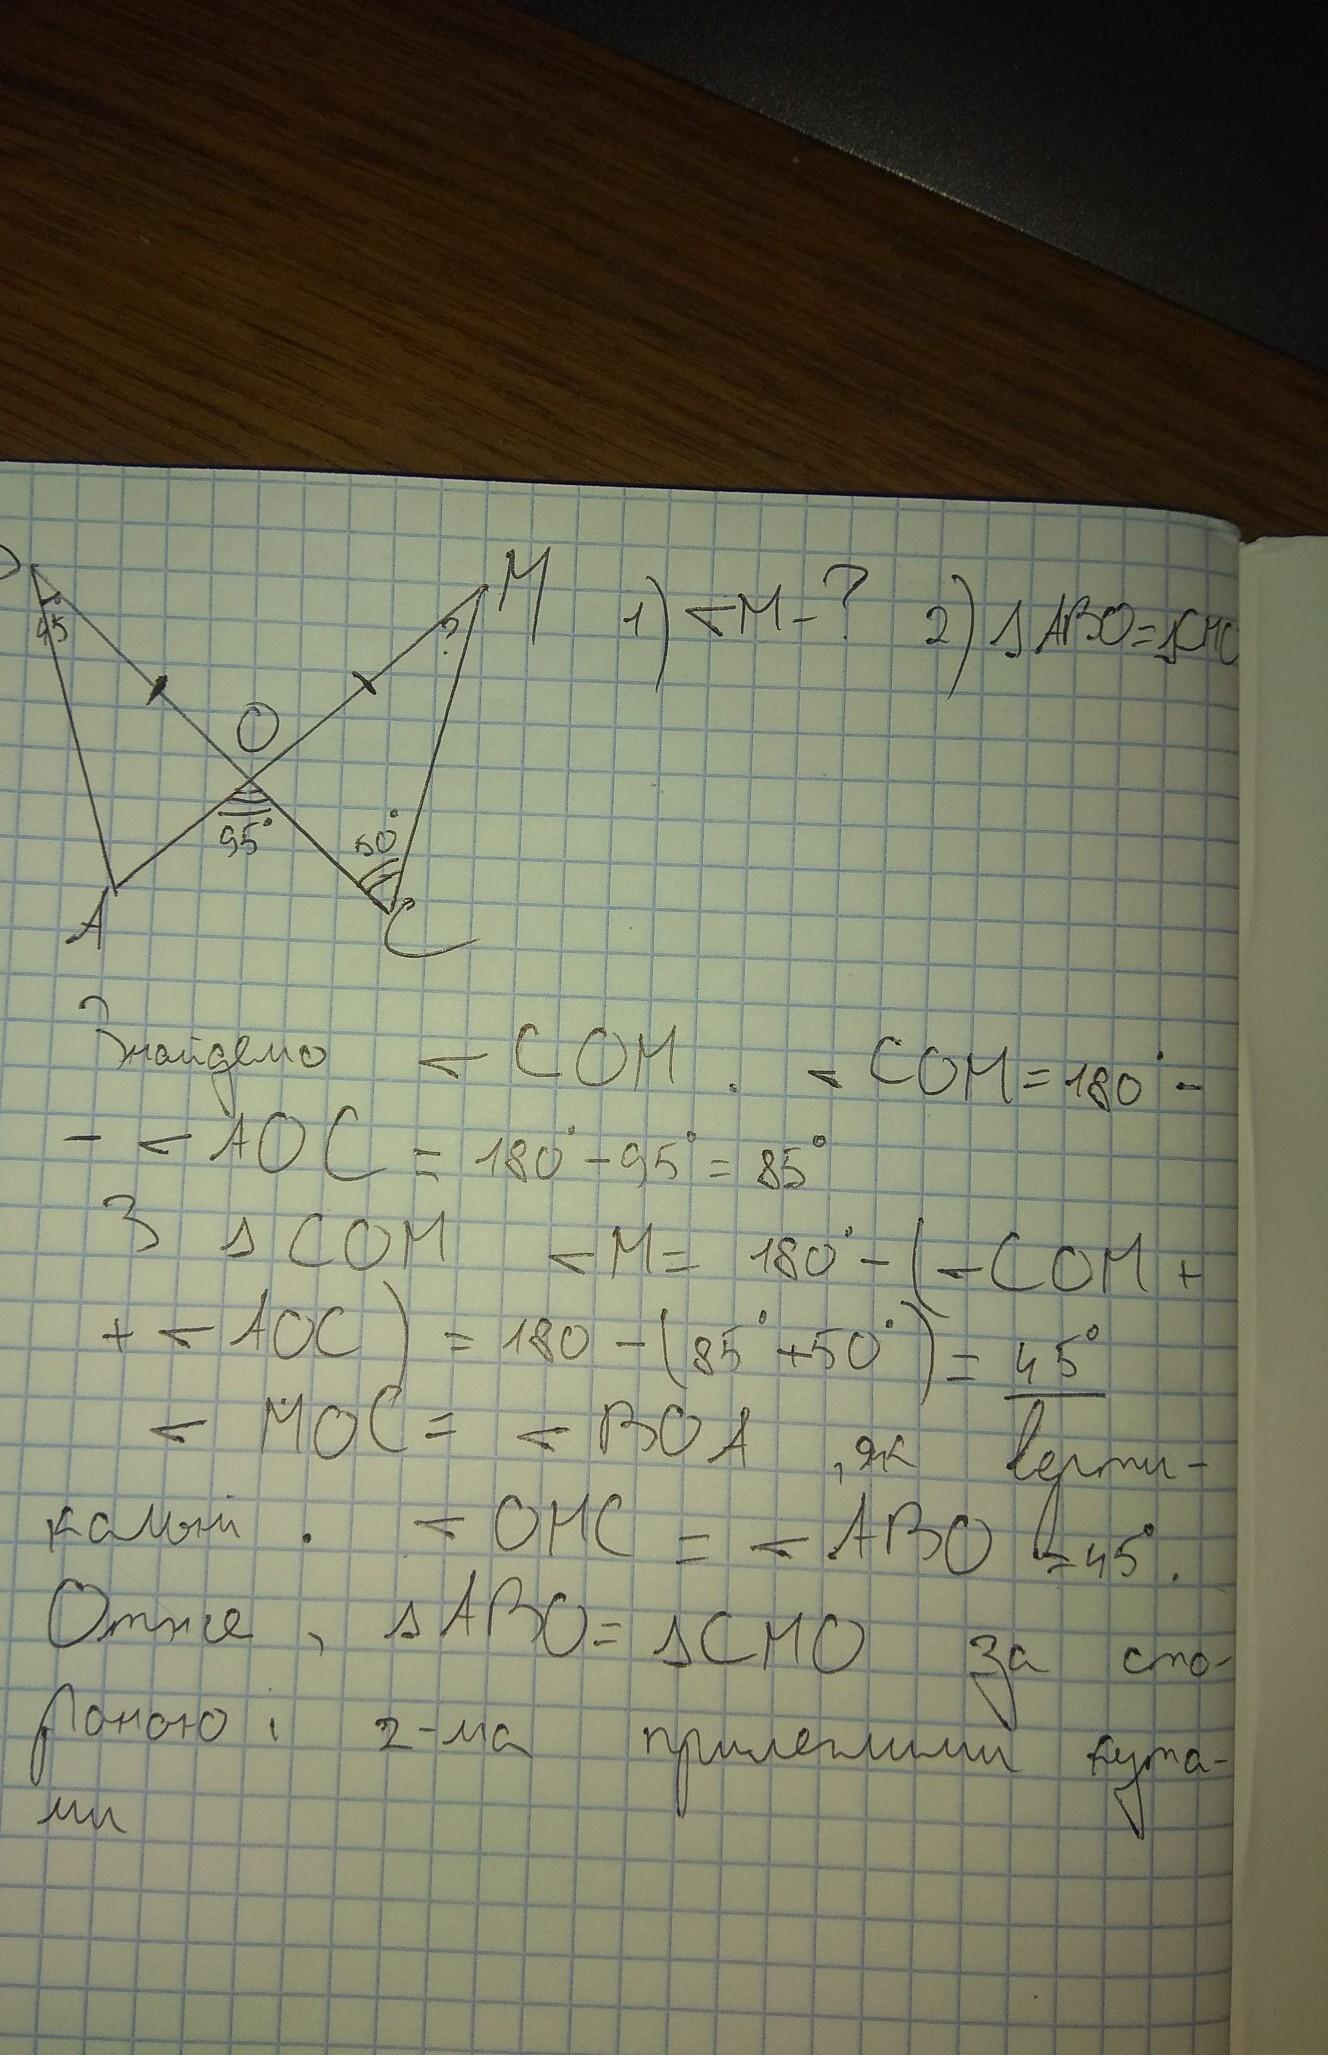 M 1) <M - ? 2) Δ ABO = ΔCMO
45 ?
O
95° 50°
A C
Знайдемо < COM . < COM = 180° -
- < AOC = 180° - 95° = 85°
З Δ COM < M = 180° - (< COM +
+ < AOC) = 180 - (85° + 50°) = 45°
< MOC = < BOA , як верти-
кальні . < OMC = < ABO = 45° .
Отже , Δ ABO = Δ CMO за сто-
роною і 2-ма прилеглими кута-
ми